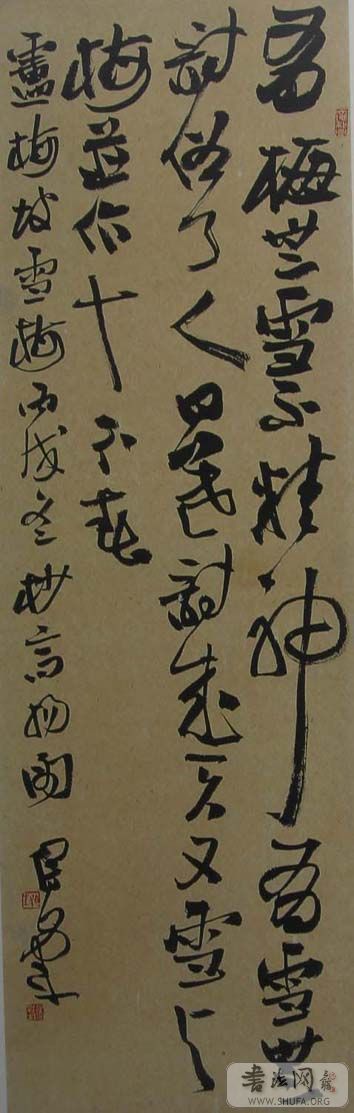 有梅無雪不精神有雪無
詩俗了人日暮詩成天又雪与
梅並作十分春
盧梅坡雪梅丙戌冬抄
書法网
WWW.SHUFA.ORG